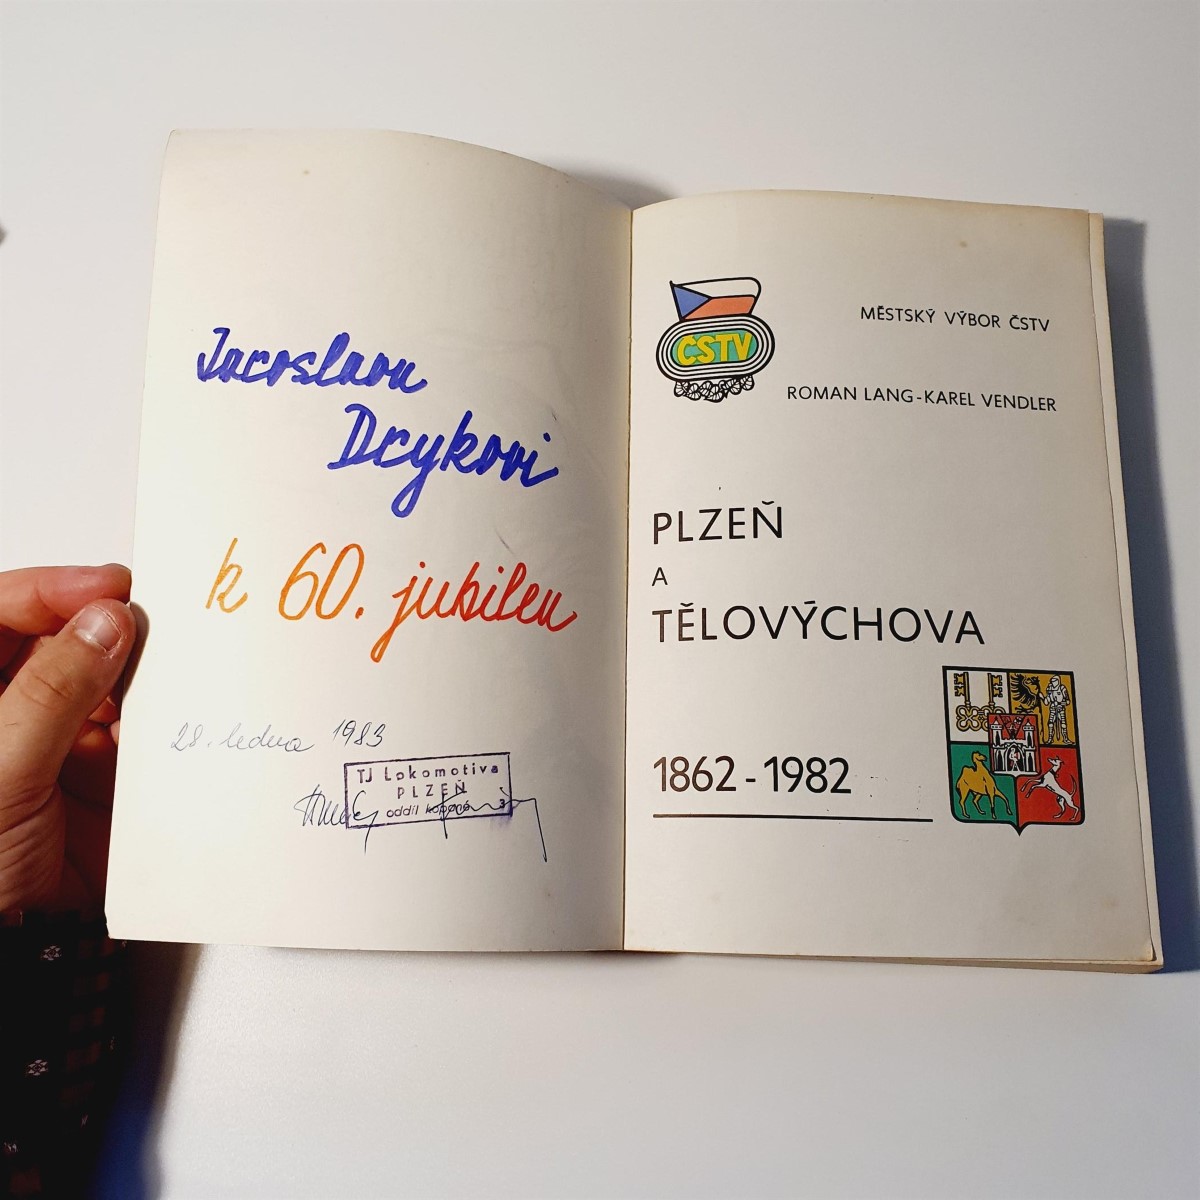 Jaroslavu
Drykovi
k 60. jubileu
28. ledna 1983
TJ Lokomotiva
PLZEŇ
oddíl kopané 3
ČSTV
MĚSTSKÝ VÝBOR ČSTV
ROMAN LANG-KAREL VENDLER
PLZEŇ
A
TĚLOVÝCHOVA
1862-1982